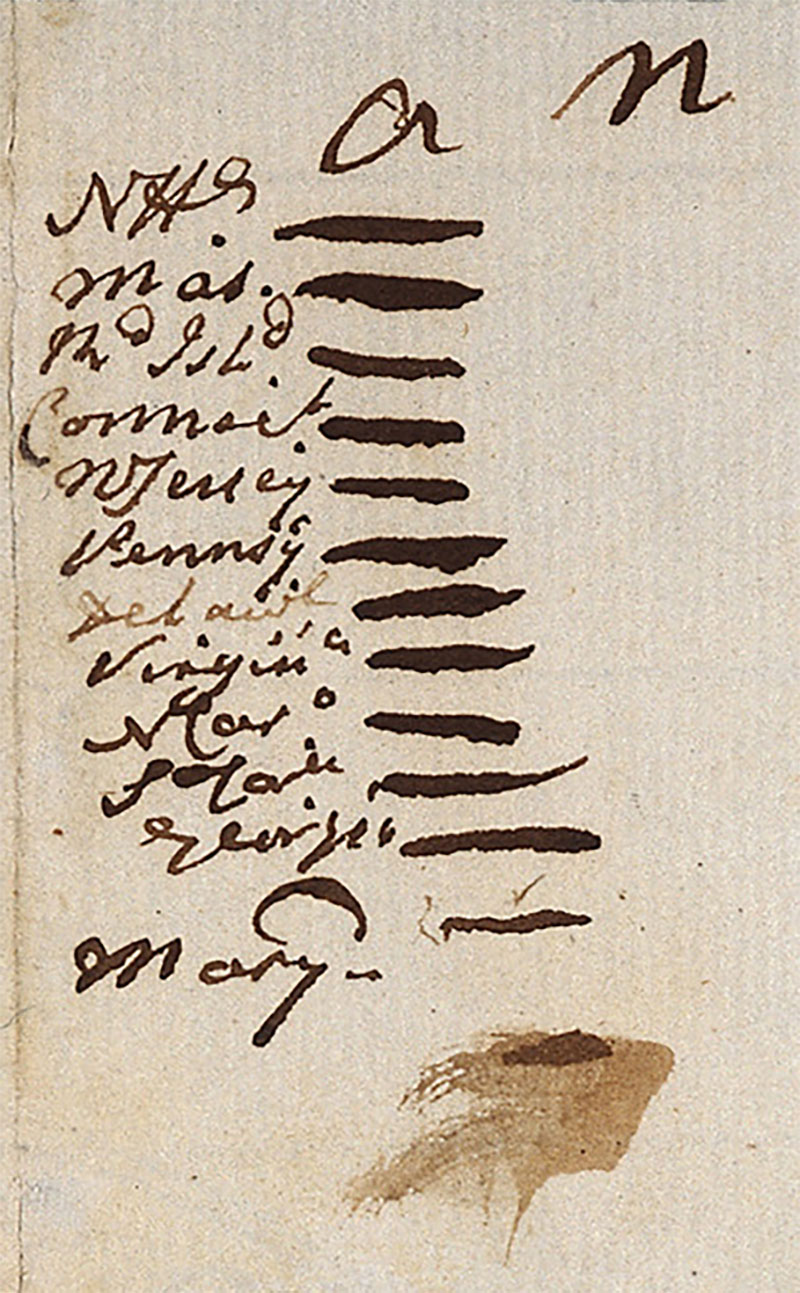 a n
NHa
Mas.
Rd Isld
Connect
N Jersey
Pennsy
Delawe
Virgina
N Caro
S Caro
Georga
Mary